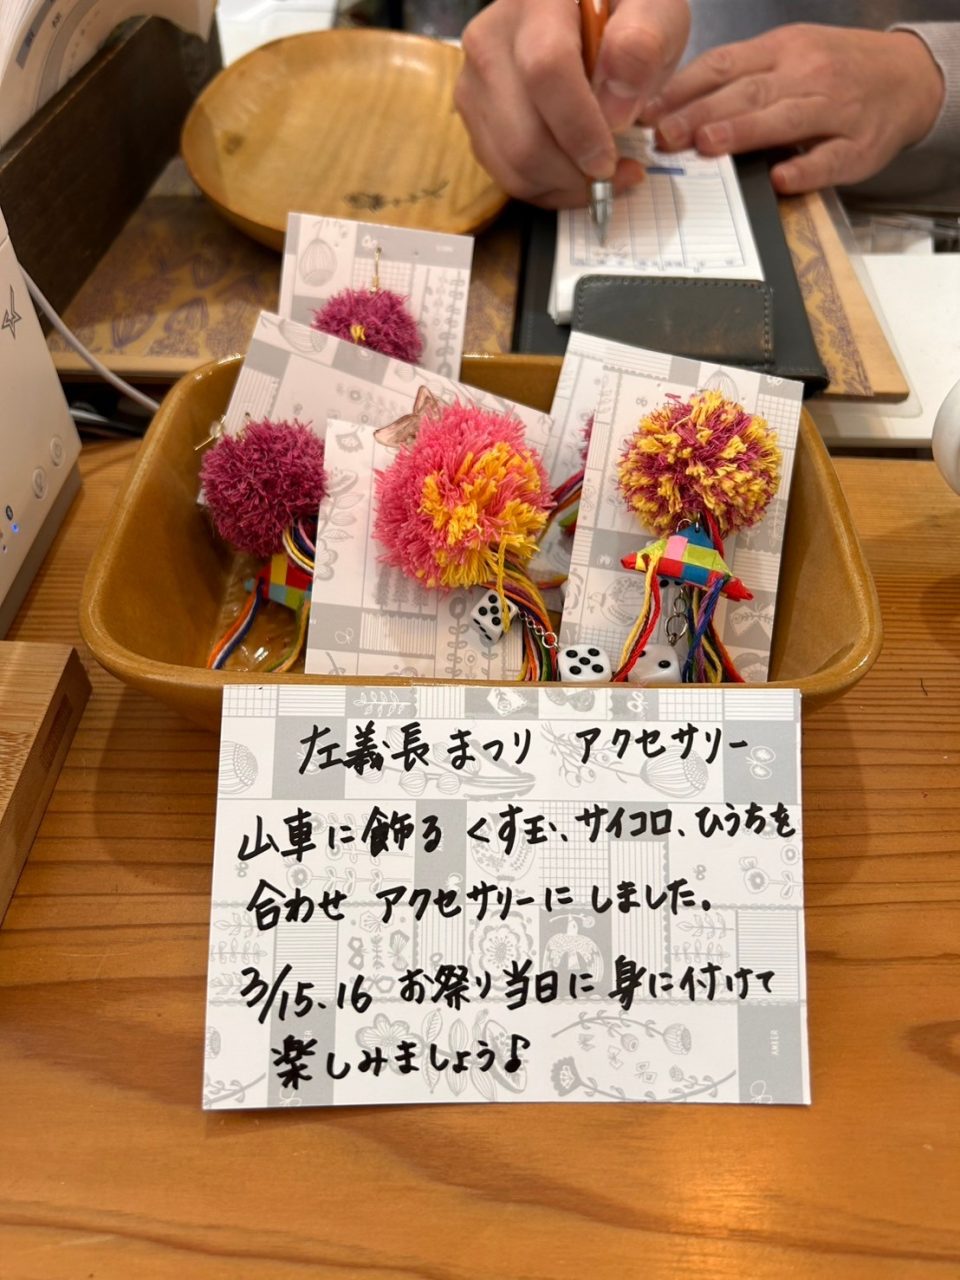 左義長まつり アクセサリー
山車に飾る くす玉、サイコロ、ひうちを
合わせ アクセサリーにしました。
3/15.16 お祭り当日に身に付けて
楽しみましょう♪